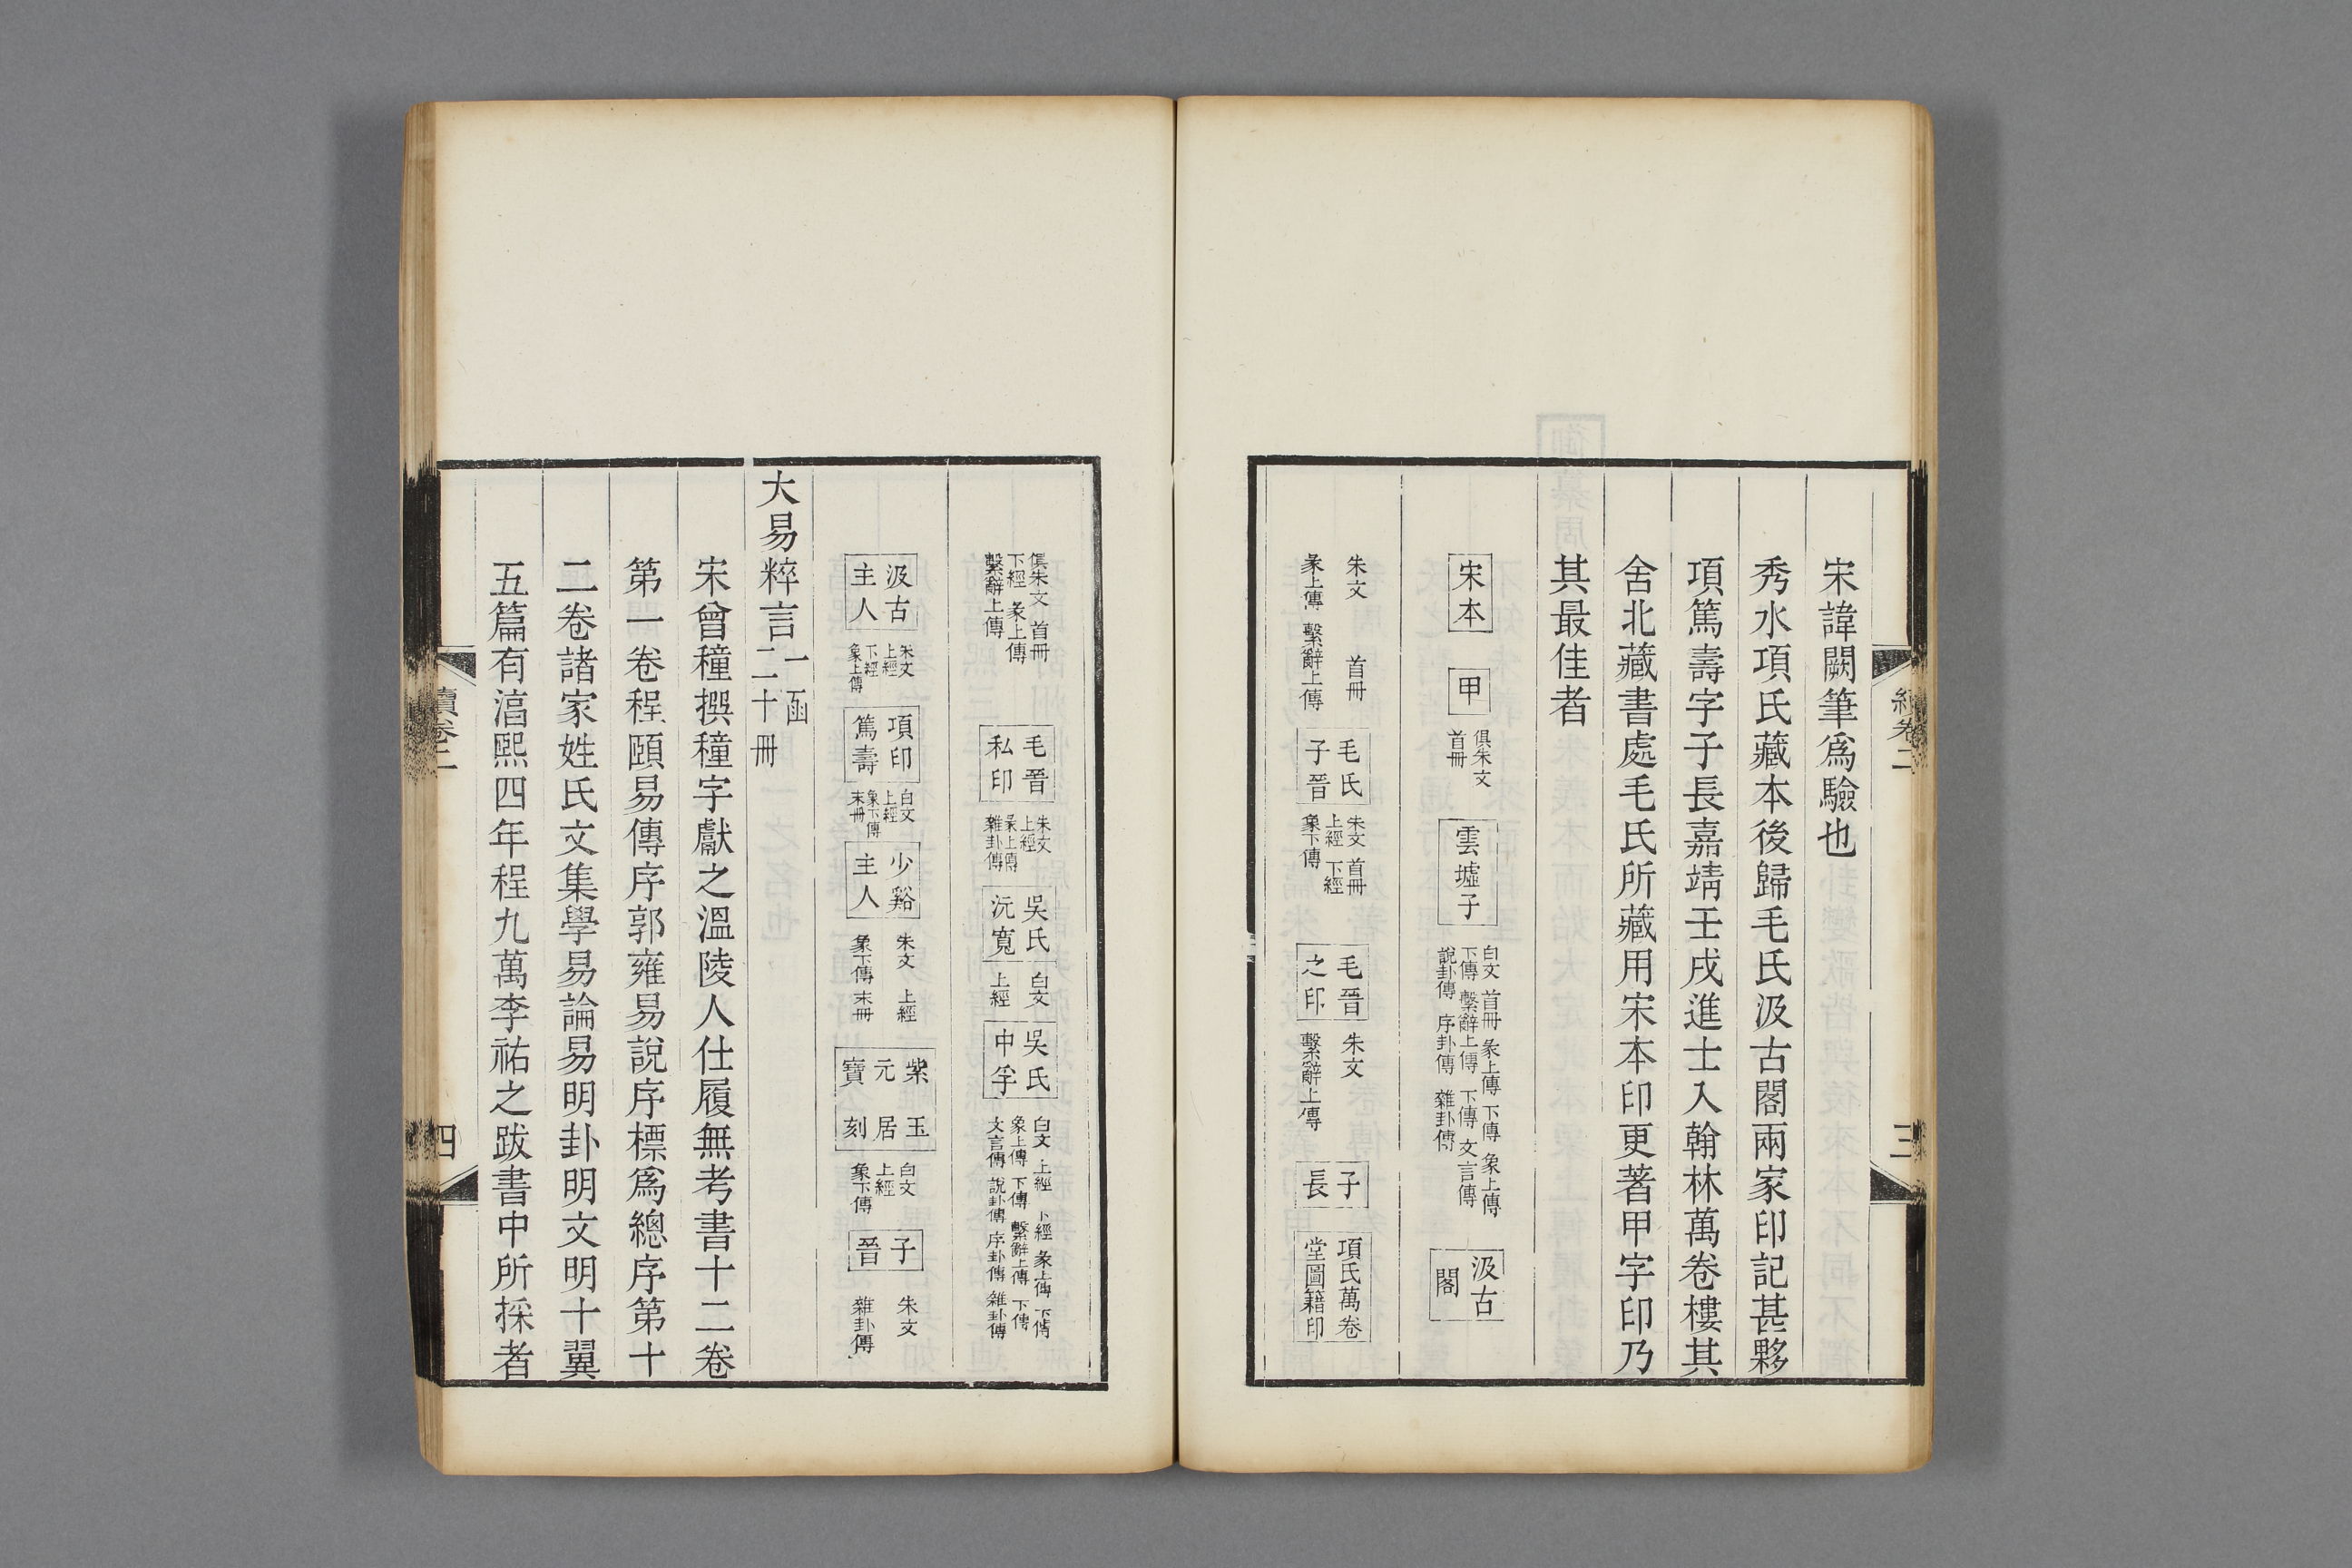 宋諱闕筆爲驗也
秀水項氏藏本後歸毛氏汲古閣兩家印記甚夥
項篤壽字子長嘉靖壬戌進士入翰林萬卷樓其
舍北藏書處毛氏所藏用宋本印更著甲字印乃
其最佳者
宋本
甲
俱朱文
首冊
雲墟子
白文 首冊 彖上傳 下傳 象上傳
下傳 繫辭上傳 下傳 文言傳
說卦傳 序卦傳 雜卦傳
汲古
閣
朱文 首冊
彖上傳 繫辭上傳
毛氏
子晉
朱文 首冊
上經 下經
象下傳
毛晉
之印
朱文
繫辭上傳
子
長
項氏萬卷
堂圖籍印
俱朱文 首冊
下經 彖上傳
繫辭上傳
毛晉
私印
朱文
上經
彖上傳
雜卦傳
吳氏
沅寬
白文
上經
吳氏
中孚
白文 上經 下經 彖上傳 下傳
象上傳 下傳 繫辭上傳 下傳
文言傳 說卦傳 序卦傳 雜卦傳
汲古
主人
朱文
上經
下經
象上傳
項印
篤壽
白文
上經
象下傳
末冊
少谿
主人
朱文 上經
象下傳 末冊
紫玉
元居
寶刻
白文
上經
象下傳
子
晉
朱文
雜卦傳
大易粹言
一函
二十冊
宋曾穜撰穜字獻之溫陵人仕履無考書十二卷
第一卷程頤易傳序郭雍易說序標爲總序第十
二卷諸家姓氏文集學易論易明卦明文明十翼
五篇有湻熙四年程九萬李祐之跋書中所採者
續卷二
四